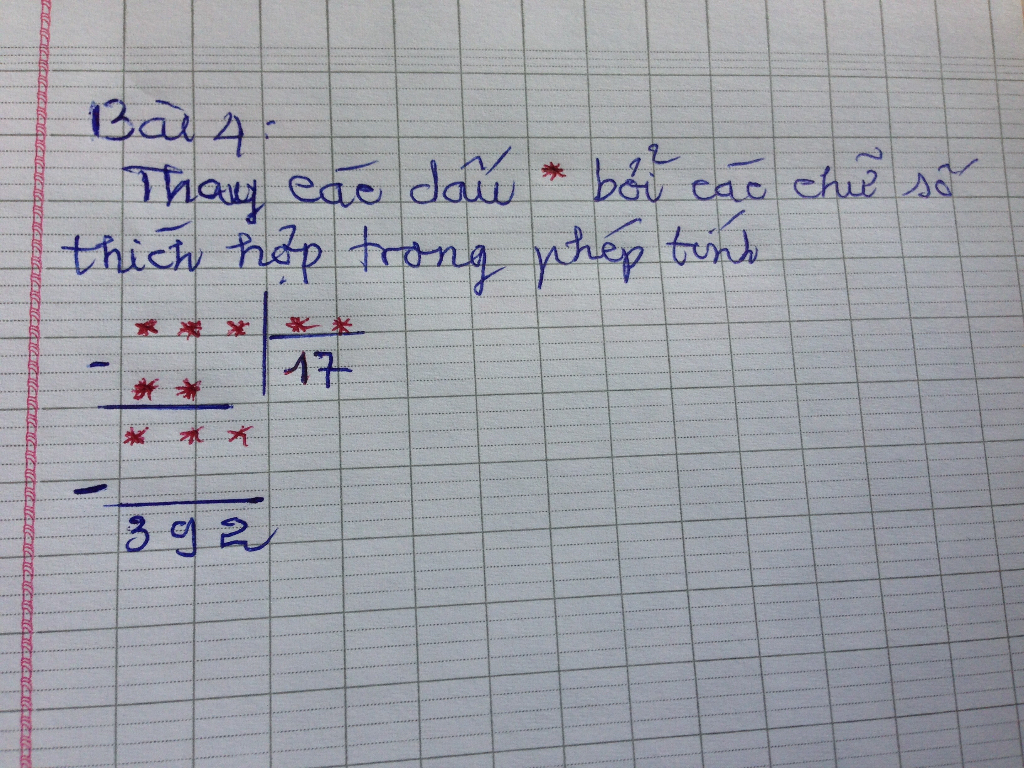 Bài 4:
Thay các dấu * bởi các chữ số
thích hợp trong phép tính
* * * | * *
- 17
* *
* * *
-
3 9 2